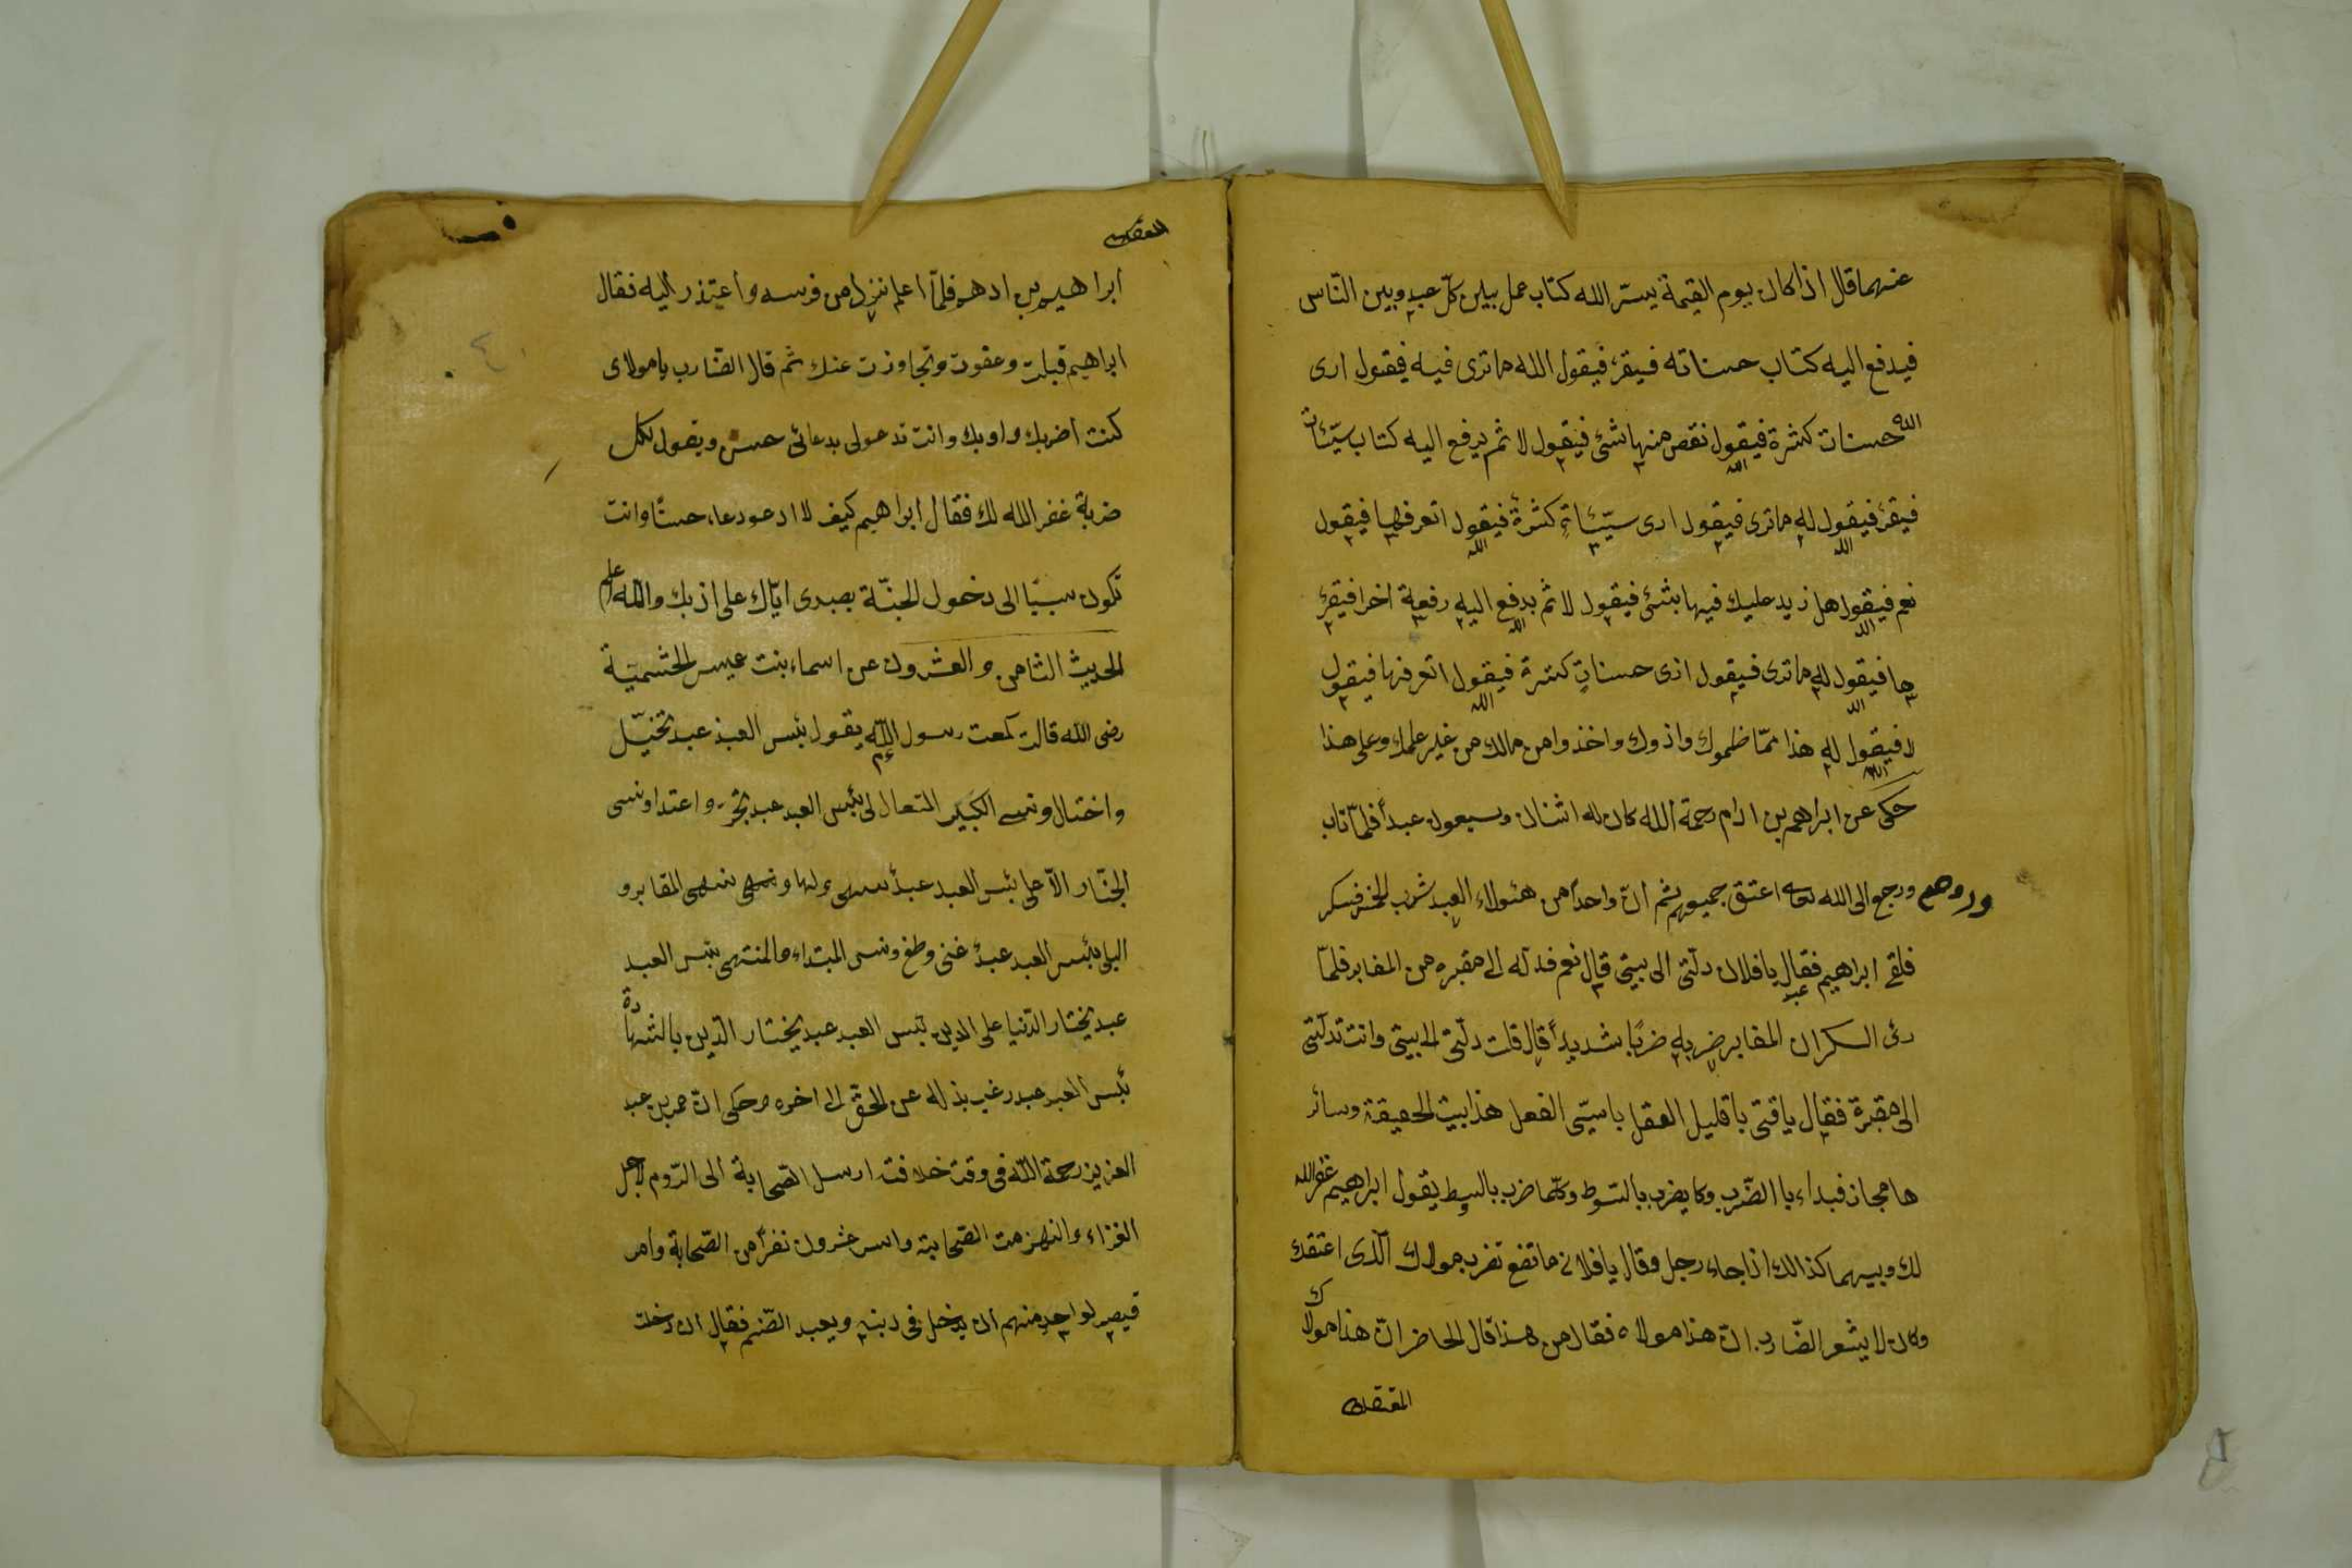 عنهما قال اذا كان يوم القيمة يسّر الله كتاب عمل بين كلّ عبد وبين النّاس
فيدفع اليه كتاب حسناته فيقرئ فيقول الله ما ترى فيه فيقول ارى
حسنات كثرة فيقول الله نقص منها شئ فيقول لا ثم يرفع اليه كتاب سيّئات
فيقرئ فيقول الله له ما ترى فيقول ارى سيّئاتٍ كثرة فيقول الله اتعرفها فيقول
نعم فيقول الله هل زيد عليك فيها بشئ فيقول لا ثم يدفع الله اليه رفعة اخرا فيقرئ
ها فيقول الله له ما ترى فيقول ارى حسناتٍ كثرة فيقول الله اتعرفها فيقول
لا فيقول الله له هذا ممّا ظلموك واذوك واخذوا من مالك من غير علمك وعلى هذا
حكى عن ابراهم بن ادام رحمة الله كان له اثنان وسبعون عبداً فلمّا تاب
ورجع الى الله اعتق جميعهم ثم انّ واحداً من هئولاء العبد شرب الخمر فسكر
فلقى ابراهيم فقال يا فلان دلّنى الى بيتى قال نعم فدله الى مقبره من المقابر فلمّا
رئ السكران المقابر ضربه ضربًا شديداً قال قلت دلّنى الى بيتى وانت تدلّنى
الى مقبرة فقال يا فتى يا قليل العقل يا سيّئ الفعل هذا بيت الحقيقة وسائر
ها مجاز فبداء با الضّرب وكا يضرب بالسّوط وكلّما ضرب بالسوط يقول ابراهيم غفر الله
لك وبينهما كذالك اذا جاء رجل وقال يا فلان ما تفع تضرب مولاك الّذى اعتقك
وكان لا يشعر الضّارب انّ هذا مولاه فقال من هذا قال الحاضر انّ هذا مولاك
ابراهيم بن ادهم فلمّا اعلم نزل من فرسه واعتذر اليه فقال
ابراهيم قبلت وعفوت وتجاوزت عنك ثم قال الضّارب يا مولاى
كنت اضربك واوبك وانت تدعولى بدعائى حسن ويقول لكل
ضربة غفر الله لك فقال ابراهيم كيف لا ادعو دعاء حسنًا وانت
تكون سببًا الى دخول الجنّة بصبرى ايّاك على اذبك والله اعلم
الحديث الثامن والعشرون عن اسماء بنت عميس الخشميّة
رضى الله قالت سمعت رسول الله يقول بئس العبد عبد تخيّل
واختال ونسى الكبير المتعال لى بئس العبد عبد تجرّ واعتدا ونسى
الجبّار الاّعلى بئس العبد عبدٌ سهى ولها ونسى المقابر و
البلى بئس العبد عبدٌ غنى وطغ ونسى المبتداء والمنتهى بئس العبد
عبد يختار الدّنيا على الدين بئس العبد عبد يختار الدّين بالشهادة
بئس العبد عبد رغب بذله عن الحقّ الى اخره وحكى انّ عمر بن عبد
العزيز رحمة الله فى وقت خلافته ارسل الصّحابة الى الرّوم لاجل
الغزاء وانهزمت الصّحابة واسر عشرون نفراً من الصّحابة وامر
قيصر لواحد منهم ان يدخل فى دينه ويعبد الصّنم فقال ان دخلت